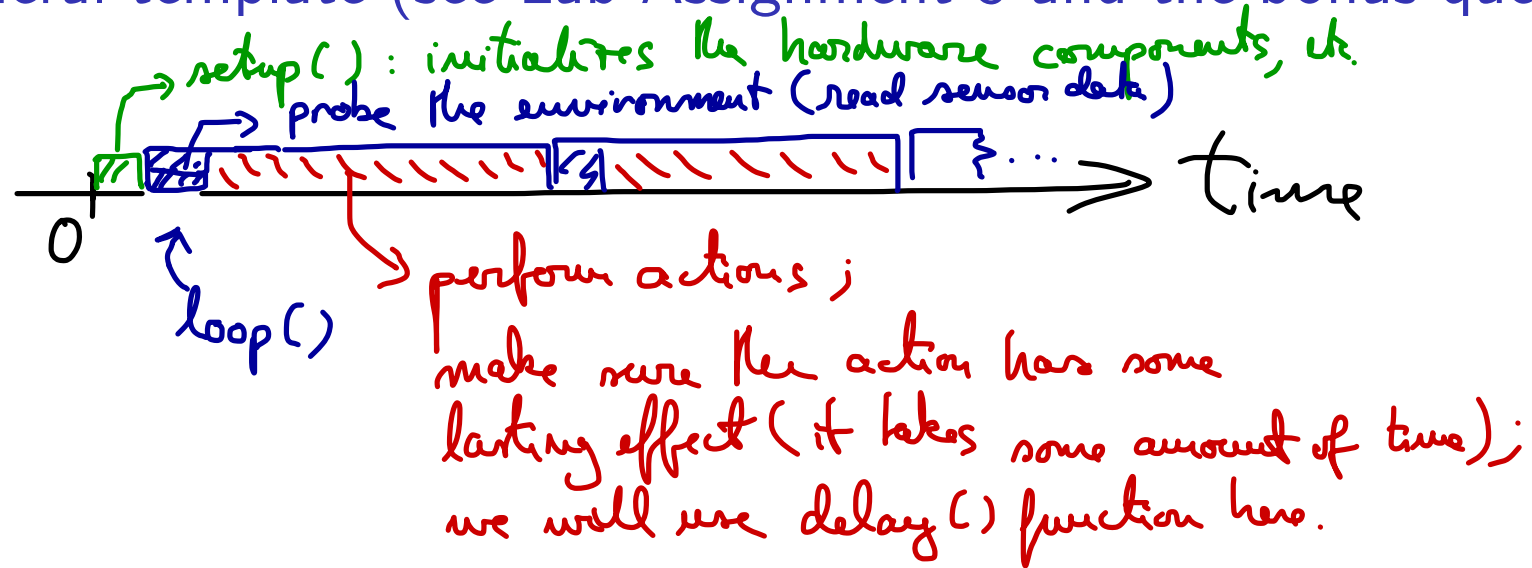 eral template (see Lab Assignment 6 and the bonus que
setup() : initializes the hardware components, etc.
probe the environment (read sensor data)
...
time
0
loop()
perform actions ;
make sure the action has some
lasting effect (it takes some amount of time) ;
we will use delay() function here.